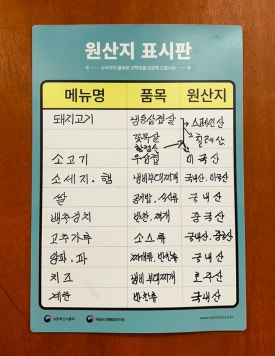 원산지 표시판
소비자의 올바른 선택권을 보장해 드립니다.
메뉴명 품목 원산지
돼지고기 냉동삼겹살 스페인산
꽃목살 칠레산
항정살
소고기 우삼겹 미국산
소세지.햄 냉비부대찌개 국내산.미국산
쌀 공기밥, 국내산
배추김치 반찬.찌개 중국산
고추가루 소스류 국내산.중국산
양파.파 찌개류, 반찬류 국내산
치즈 냄비부대찌개 호주산
계란 반찬류 국내산
농림축산식품부 국립농산물품질관리원